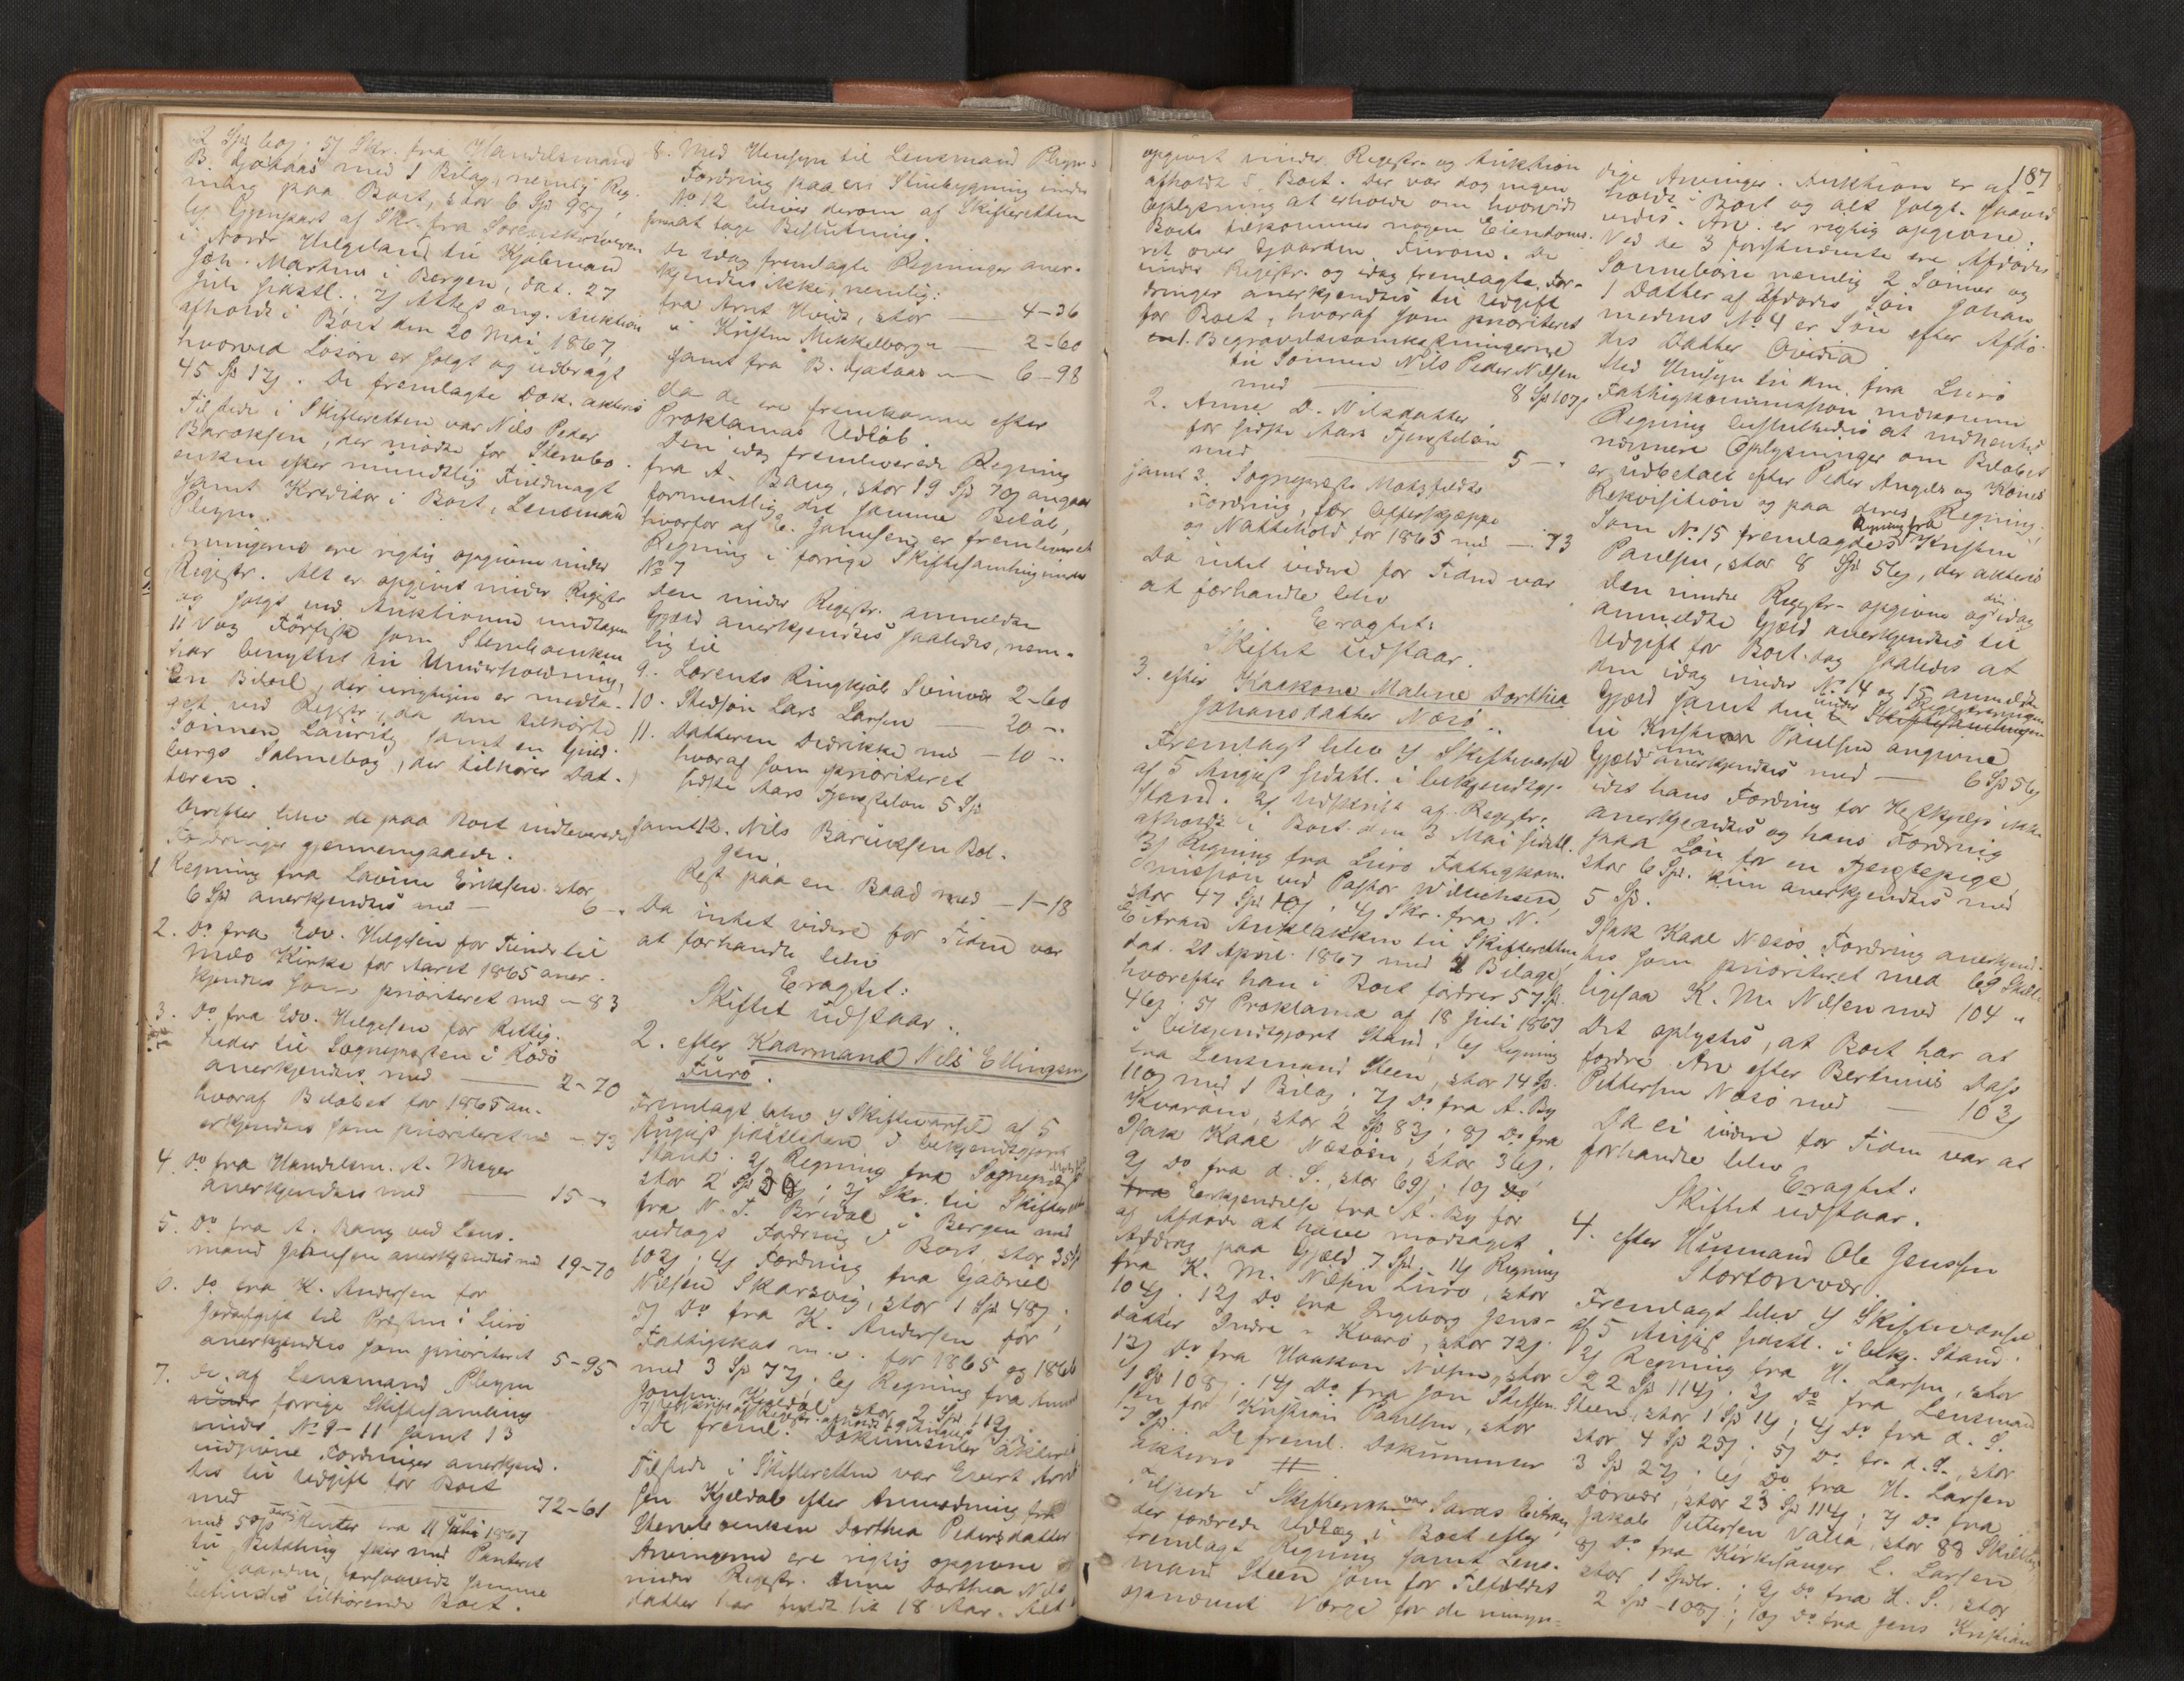 2 Spd 60 ; 5) Skr. fra Handelsmand
B. med 1 Bilag, nemlig Reg-
ning paa Boet, stor 6 Sp 98 ;
6) Gjenpart af Skr. fra Sorenskriveren
i Nordr Helgeland til Kjøbmand
Joh. Martens i Bergen, dat. 27
Juli sidstl. ; 7) Attest ang. Auktion
afholdt i Boet den 20 Mai 1867,
hvorved Løsøre er solgt og udbragt
45 Sp 12 . De fremlagte Dok. akteres
Tilstede i Skifteretten var Nils Peder
Baroksen, der mødte for Stervbo-
enken efter mundtlig Fuldmagt
samt Kreditor i Boet, Lensmand
Pleym.
Arvingerne ere rigtig opgivne under
Registr. Alt er opgivet under Registr
og solgt ved Auktionen undtagen
11 Vog Tørfisk som Stervboenken
har benyttet til Underholdning,
En Bibel, der urigtigen er medta-
get ved Registr, da den tilhørte
Sønnen Lauritz samt en Guld-
bergs Salmebog, der tilhører Dat-
teren.
Derefter blev de paa Boet indleverede
Fordringer gjennemgaaede.
1 Regning fra Lavine Eriksen stor
6 Spd anerkjendtes med — 6 - „
2. Do fra Edv. Helgesen for Tiende til
Kirke for Aaret 1865 aner-
kjendtes som prioriteret med „ - 83
3. Do fra Edv. Helgesen for Rettig-
heder til Sognepresten i Rødø
anerkjendtes med — 2-70
hvoraf Beløbet for 1865 an-
erkjendtes som prioriteret med - 73
4. Do fra Handelsm. A. Meyer
anerkjendtes med — 15 - „
5. Do fra A. Bang ved Lens-
mand Jahnsen anerkjendtes med 19-70
6. Do fra K. Andersen for
til Presten i Lurø
anerkjendtes som prioriteret 5-95
7. De af Lensmand Pleym
under forrige Skiftesamling
under No 9-11 samt 13
indgivne Fordringer anerkjend-
tes til Udgift for Boet
med — 72-61
med 5% Renter fra 11 Juli 1867
til Betaling sker med Panteret
i Gaarden, forsaavidt samme
befindes tilhørende Boet.
8. Med Hensyn til Lensmand Pleyms
Fordring paa en Stuebygning under
No 12 bliver derom af Skifteretten
at tage Beslutning.
De idag fremlagte Regninger aner-
kjendtes ikke, nemlig:
fra Arnt Hveid, stor — 4-36
„ Kristen Mikkelborg „ — 2-60
samt fra B. „ — 6-98
da de ere fremkomne efter
Proklamas Udløb.
Den idag fremleverede Regning
fra A. Bang, stor 19 Sp 70 angaar
formentlig det samme Beløb,
hvorfor af E. Jahnsen er fremleveret
Regning i forrige Skiftesamling under
No 7
Den under Registr. anmeldte
Gjæld anerkjendtes saaledes, nem-
lig til
9. Lorents Ringkjøb 2-60
10. Stedsøn Lars Larsen — 20 - „
11. Datteren Didrikke med — 10 - „
hvoraf som prioriteret
sidste Aars Tjenesteløn 5 Sp
samt 12. Nils Baruksen Bol-
gen
Rest paa en Baad med — 1-18
Da intet videre for Tiden var
at forhandle blev
Eragtet:
Skiftet udstaar.
2. efter Kaarmand Nils Ellingsen
Furø.
Fremlagt blev 1) Skiftevarsel af 5
August sidstleden i bekjendtgjort
Stand. 2) Regning fra Sogneprest
stor 2 Sp ; 3) Skr. til Skifteretten
fra N. T. Bredal i Bergen med
vedlagt Fordring i Boet, stor 35
102 ; 4) Fordring fra Gabriel
Nilsen Skarsvig, stor 1 Sp 48 ;
5) Do fra K. Andersen for
Fattigskat m. v. for 1865 og 1866
med 3 Sp 77 ; 6) Regning fra
Jonsen Kjeldal stor 2 Sp 119 ;
De freml. Dokumenter akteres
Tilstede i Skifteretten var Evert
sen Kjeldal efter Anmodning fra
Stervboenken Dorthea Pedersdatter
Arvingerne ere rigtig opgivne
under Registr. Anne Dorthea Nils-
datter har fyldt sit 18 Aar. Alt
187
opgivet under Registr. og Auktion
afholdt i Boet. Der var dog ingen
Oplysning at erholde om hvorvidt
Boet tilkommer nogen Eiendoms-
ret over Gjaarden Furøen. De
under Registr. og idag fremlagte For-
dringer anerkjendtes til Udgift
for Boet, hvoraf som prioriteret
1. Begravelsesomkostningerne
til Sønnen Nils Peder Nilsen
med — 8 Sp 107
2. Anne D. Nilsdatter
for sidste Aars Tjenesteløn
med — 5 - „
samt 3. Sogneprest Motzfeldts
Fordring, for
og Nattehold for 1865 med — 73
Da intet videre for Tiden var
at forhandle blev
Eragtet:
Skiftet udstaar.
3. efter Kaakone Maline Dorthea
Johansdatter Næsø.
Fremlagt blev 1) Skiftevarsel
af 5 August sidstl. i bekjendtgj.
Stand. 2) Udskrift af Registr.
afholdt i Boet den 3 Mai sidstl.
3) Regning fra Lurø Fattigkom-
mission ved Pastor Wettergreen,
stor 47 Spd ; 4) Skr. fra N.
til Skifteretten,
dat. 21 April 1867 med 2 Bilage,
hvorefter han i Boet fordrer 57 Sp
46 ; 5) Proklama af 18 Juli 1867
i bekjendtgjort Stand ; 6) Regning
fra Lensmand Steen, stor 14 Sp
110 med 1 Bilag ; 7) Do fra A. By
Kvarøen, stor 2 Sp 83 ; 8) Do fra
Isak Kaal Næsøen, stor 36 ;
9) Do fra d. S., stor 69 ; 10) Do
Erkjendelse fra A. By for
af Afdøde at have modtaget
Afdrag paa Gjæld 7 Spd. 11) Regning
fra K. M. Nilsen Lurø, stor
104 ; 12) Do fra Ingeborg Jens-
datter Indre Kvarø, stor 72 ;
13) Do fra Haakon Nilsen, stor
1 Sp 108 ; 14) Do fra Jon Steffen-
sen for Kristian Paulsen, stor
7 Sp. De freml. Dokumenter
akteres
Tilstede i Skifteretten var
der fordrede Udlæg i Boet efter
fremlagt Regning samt Lens-
mand Steen som for Tilfældet
opnævnt Værge for de umyn-
dige Arvinger. Auktion er af-
holdt i Boet og alt solgt. saavid
vides. Arv. er rigtig opgivne:
Ved de 3 forstnævnte ere Afdødes
Sønnebørn nemlig 2 Sønner og
1 Datter af Afdødes Søn Johan
medens No 4 er Søn efter Afdø-
des Datter Ovidia
Med Hensyn til den fra Lurø
Fattigkommission indkomne
Regning besluttedes at indhente
nærmere Oplysninger om Beløbet
er udbetalt efter Peder Angels og Kones
Rekvisition og paa deres Regning.
Som No 15 fremlagdes Regning fra Kristen
Paulsen, stor 8 Spd 56, der akteres
Den under Registr. opgivne og den idag
anmeldte Gjæld anerkjendtes til
Udgift for Boet dog saaledes at
den idag under No 14 og 15 anmeldte
Gjæld samt den under Registreringen
til Kristian Paulsen angivne
Gjæld kun anerkjendtes med — 6 Sp 56
idet hans Fordring for ikke
anerkjendtes og hans Fordring
paa Løn for en Tjenestepige,
stor 6 Spd. kun anerkjendtes med
5 Sp.
Isak Kaal Næsøs Fordring anerkjend-
tes som prioriteret med 69 Skill.
ligesaa K. M. Nilsen med 104 „
Det oplystes, at Boet har at
fordre Arv efter Bertinus Dass
Pettersen Næsø med — 103
Da ei videre for Tiden var at
forhandle blev
Eragtet:
Skiftet udstaar.
4. efter Husmand Ole Jenssen
Stortorvær
Fremlagt blev 1) Skiftevarsel
af 5 August sidstl. i bekj. Stand.
2) Regning fra H. Larsen, stor
22 Sp 114 ; 3) Do fra Lensmand
Steen, stor 1 Sp 14 ; 4) Do fra d. S.
stor 4 Sp 25 ; 5) Do fr. d. S., stor
3 Sp 27 ; 6) Do fra H. Larsen
Dørvær, stor 23 Sp 114 ; 7) Do fra
Jakob Pettersen Valla, stor 88 Skilling
8) Do fra Kirkesanger L. Larsen
stor 1 Spdlr. ; 9) Do fra d. S., stor
2 Sp - 108 ; 10) Do fra Jens Kristian